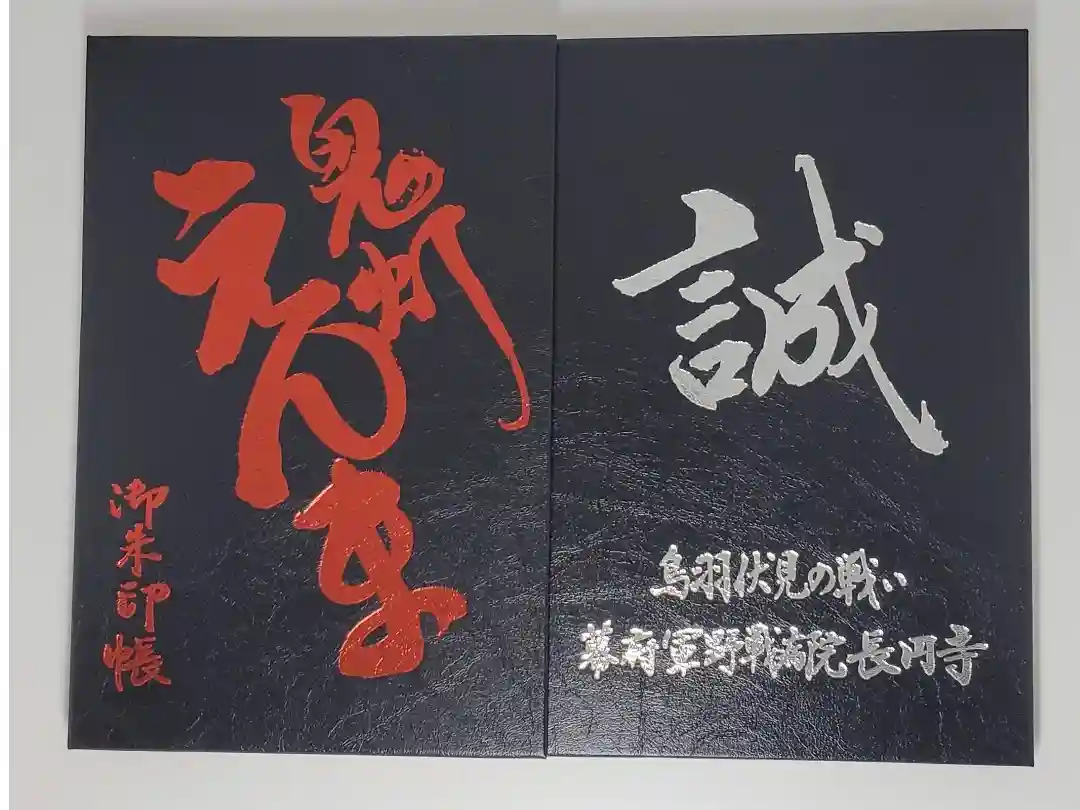 鬼の
えんま
御朱印帳
誠
鳥羽伏見の戦い
幕府軍野戦病院長円寺